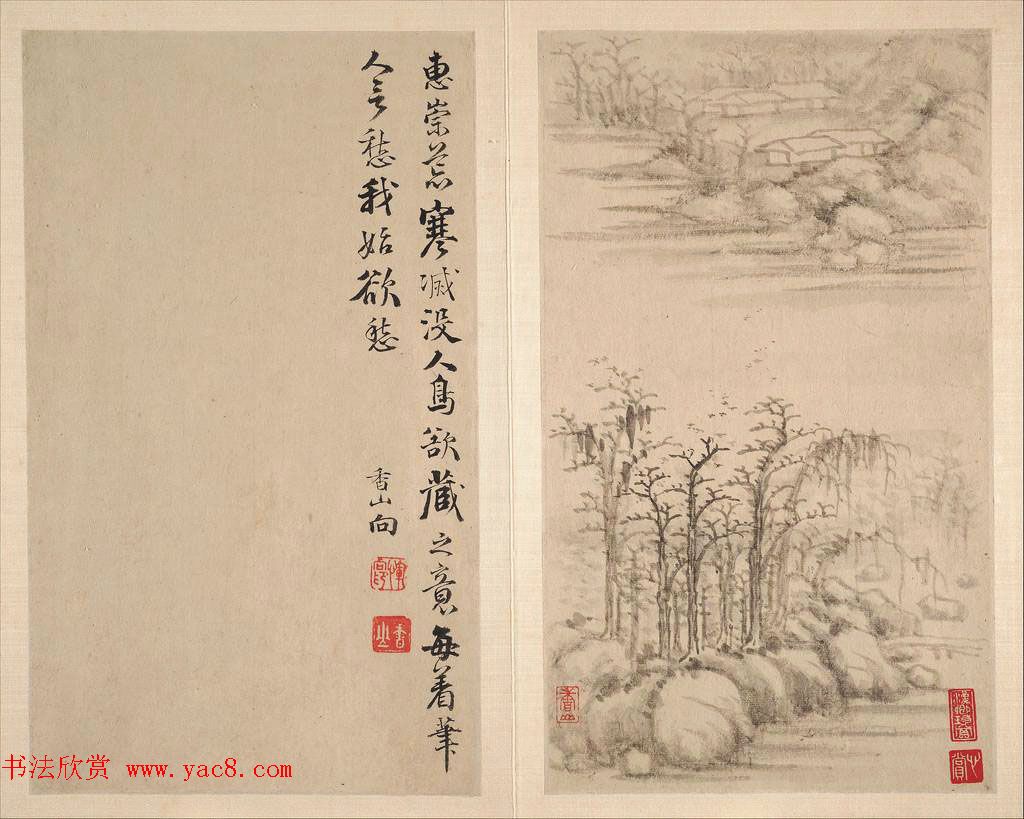 惠崇荒寒滅没人鳥欲藏之意每着筆
人言愁我始欲愁
香山向
香山
香山
书法欣赏 www.yac8.com